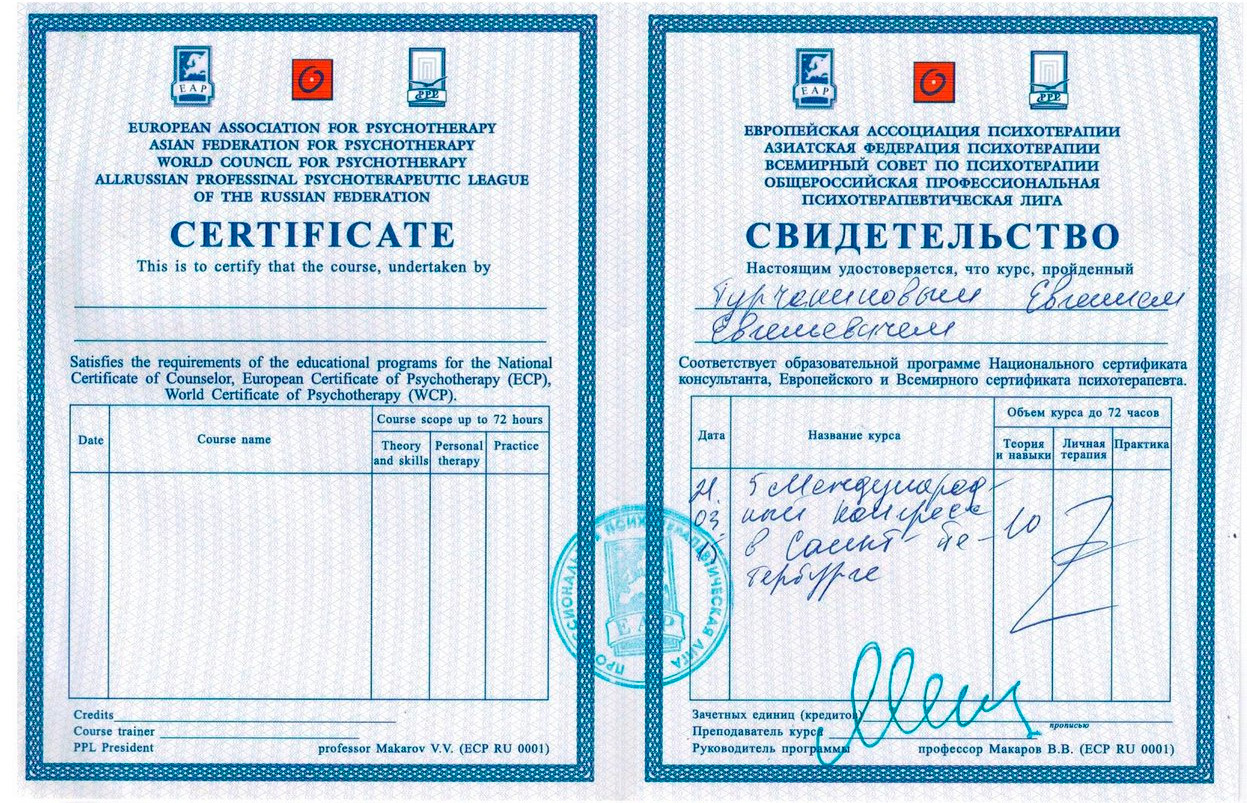 EAP
PPL
EUROPEAN ASSOCIATION FOR PSYCHOTHERAPY
ASIAN FEDERATION FOR PSYCHOTHERAPY
WORLD COUNCIL FOR PSYCHOTHERAPY
ALLRUSSIAN PROFESSINAL PSYCHOTERAPEUTIC LEAGUE
OF THE RUSSIAN FEDERATION
CERTIFICATE
This is to certify that the course, undertaken by
Satisfies the requirements of the educational programs for the National
Certificate of Counselor, European Certificate of Psychotherapy (ECP),
World Certificate of Psychotherapy (WCP).
Date
Course name
Course scope up to 72 hours
Theory
and skills
Personal
therapy
Practice
Credits
Course trainer
PPL President professor Makarov V.V. (ECP RU 0001)
EAP
PPL
ЕВРОПЕЙСКАЯ АССОЦИАЦИЯ ПСИХОТЕРАПИИ
АЗИАТСКАЯ ФЕДЕРАЦИЯ ПСИХОТЕРАПИИ
ВСЕМИРНЫЙ СОВЕТ ПО ПСИХОТЕРАПИИ
ОБЩЕРОССИЙСКАЯ ПРОФЕССИОНАЛЬНАЯ
ПСИХОТЕРАПЕВТИЧЕСКАЯ ЛИГА
СВИДЕТЕЛЬСТВО
Настоящим удостоверяется, что курс, пройденный
Турчаниновым Евгением
Евгеньевичем
Соответствует образовательной программе Национального сертификата
консультанта, Европейского и Всемирного сертификата психотерапевта.
Дата
Название курса
Объем курса до 72 часов
Теория
и навыки
Личная
терапия
Практика
21.
03
15
5 Международ-
ный конгресс
в Санкт-Пе-
тербурге
10
Зачетных единиц (кредитов)
прописью
Преподаватель курса
Руководитель программы профессор Макаров В.В. (ECP RU 0001)
ПРОФЕССИОНАЛЬНАЯ ПСИХОТЕРАПЕВТИЧЕСКАЯ ЛИГА
EAP